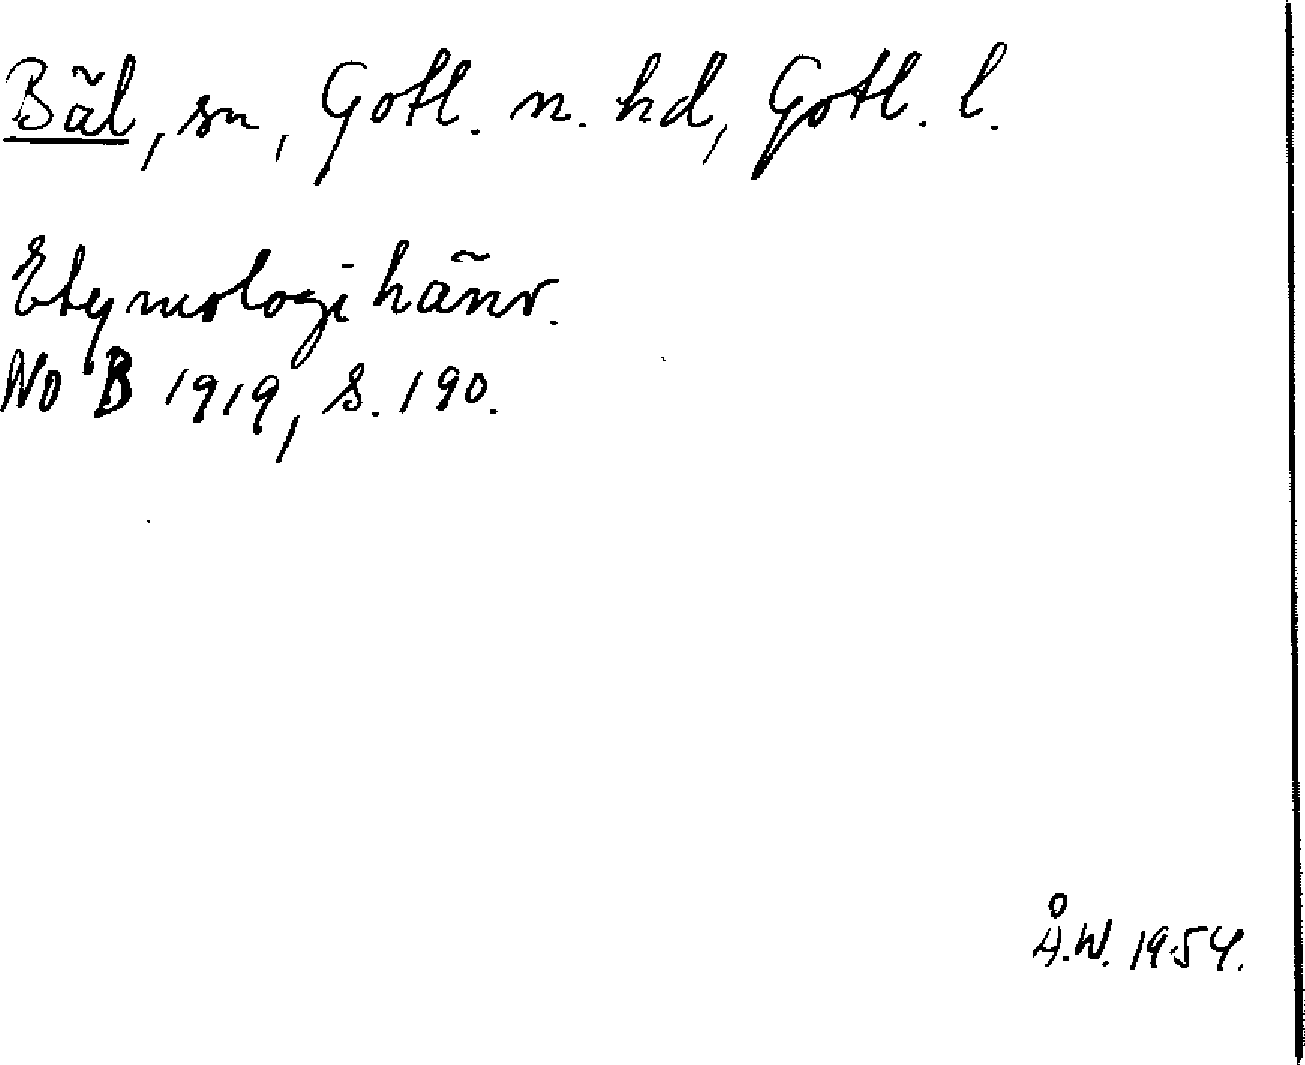 Bäl, sn, Gotl. n. hd, Gotl. l.
Etymologihänv.
NoB 1919, s. 190.
Å.W. 1954.